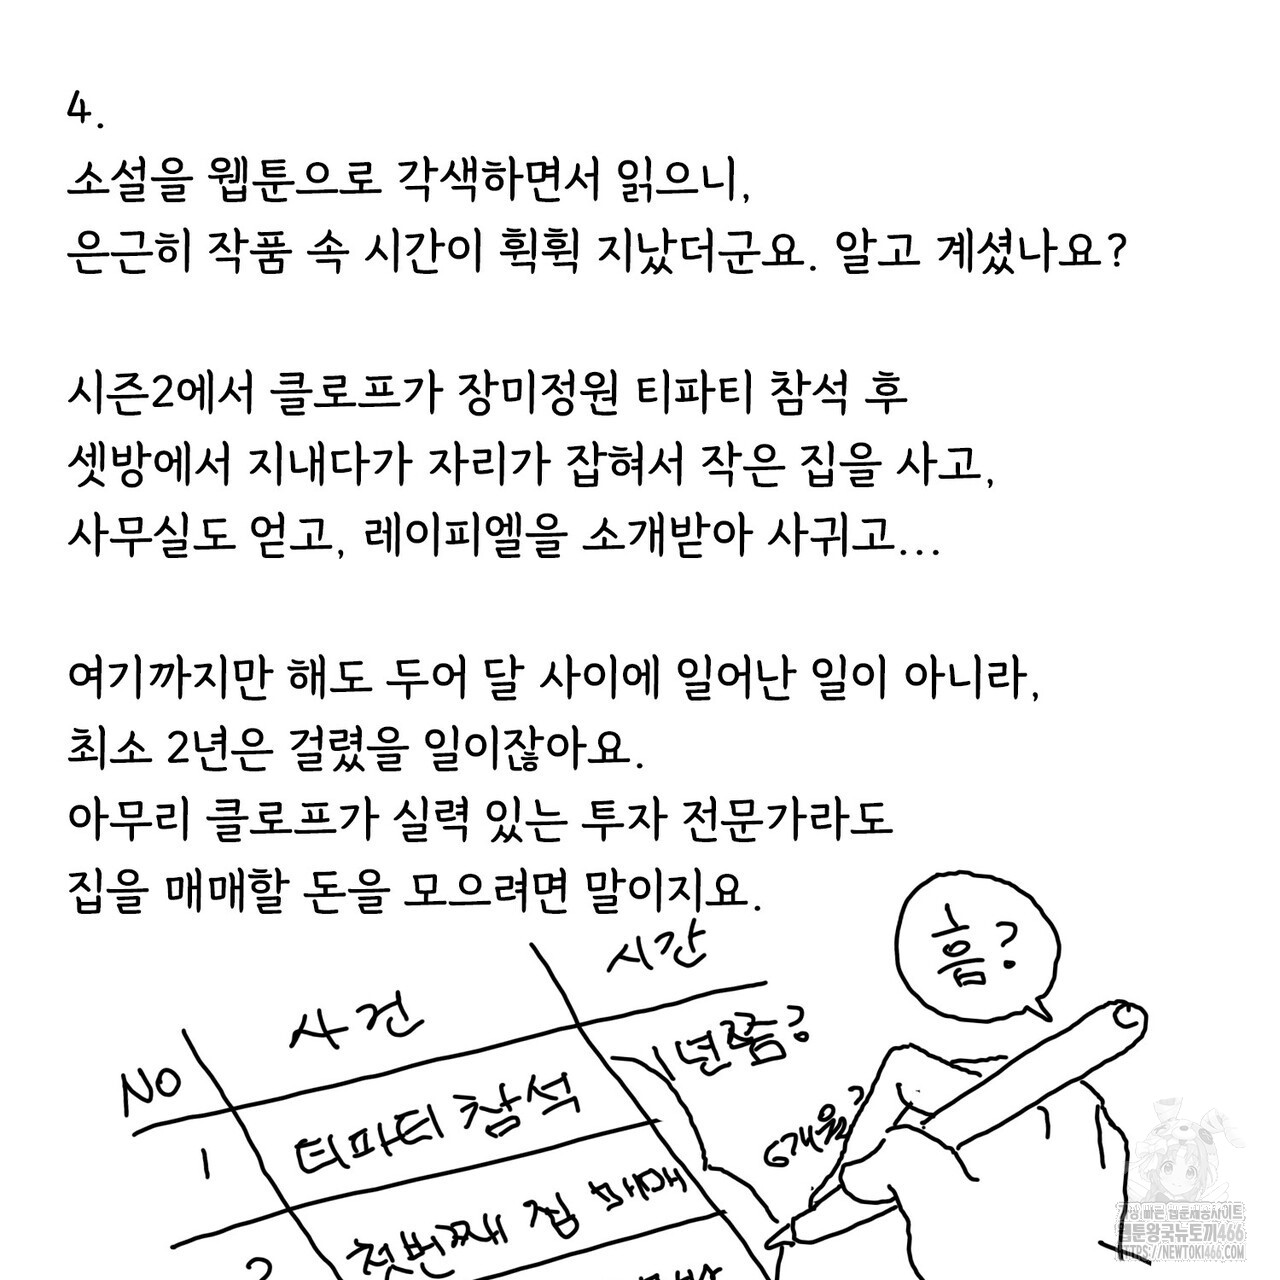 4.
소설을 웹툰으로 각색하면서 읽으니,
은근히 작품 속 시간이 휙휙 지났더군요. 알고 계셨나요?
시즌2에서 클로프가 장미정원 티파티 참석 후
셋방에서 지내다가 자리가 잡혀서 작은 집을 사고,
사무실도 얻고, 레이피엘을 소개받아 사귀고...
여기까지만 해도 두어 달 사이에 일어난 일이 아니라,
최소 2년은 걸렸을 일이잖아요.
아무리 클로프가 실력 있는 투자 전문가라도
집을 매매할 돈을 모으려면 말이지요.
흠?
NO 사건 시간
1 티파티 참석 1년쯤?
2 첫번째 집 매매 6개월?
가장 빠른 웹툰제공사이트
웹툰왕국뉴토끼466
HTTPS://NEWTOKI466.COM